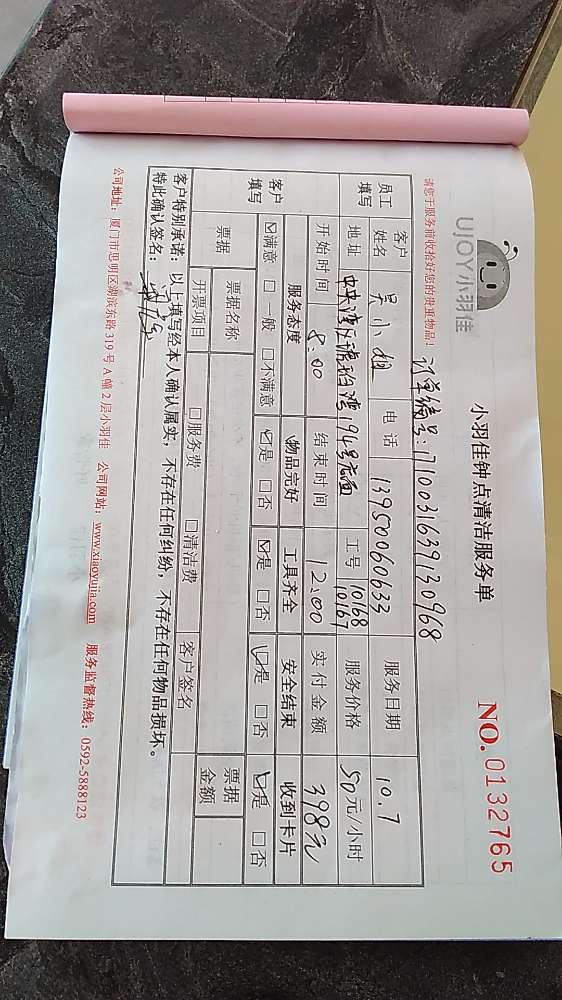 UJOY小羽佳
小羽佳钟点清洁服务单
NO.0132765
订单编号:17100316391130968
请您于服务前收拾好您的贵重物品!
员工填写 客户姓名 吴小姐 电话 13950060633 服务日期 10.7
地址 中央湾区琥珀湾94号店面 工号 10168 10167 服务价格 50元/小时
开始时间 8:00 结束时间 12:00 实付金额 398元
客户填写 服务态度 物品完好 工具齐全 安全结束 收到卡片
☑满意 □一般 □不满意 ☑是 □否 ☑是 □否 ☑是 □否 ☑是 □否
票据 票据名称 客户签名 票据金额
开票项目 □服务费 □清洁费
客户特别承诺:以上填写经本人确认属实,不存在任何纠纷,不存在任何物品损坏。
特此确认签名:
公司地址:厦门市思明区湖滨东路319号A幢2层小羽佳 公司网站:www.xiaoyujia.com 服务监督热线:0592-5888123